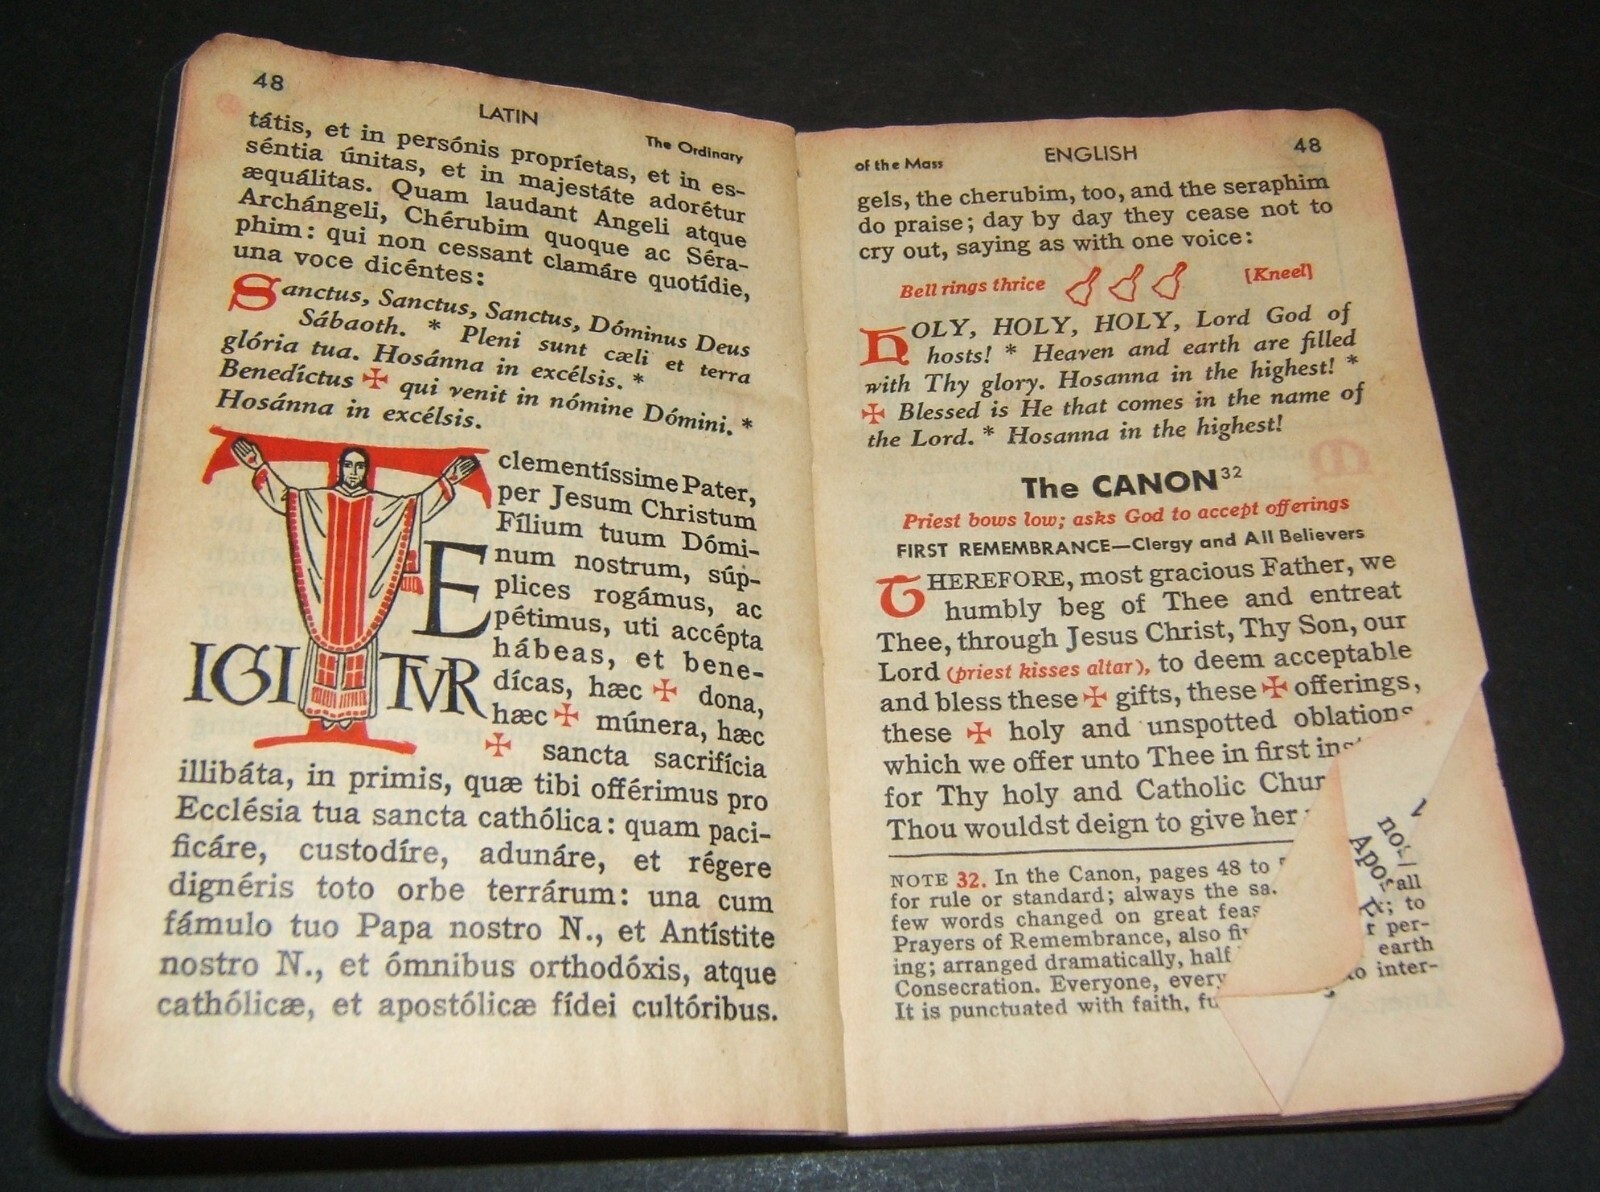 48
LATIN
The Ordinary
tátis, et in persónis propríetas, et in es-
séntia únitas, et in majestáte adorétur
æquálitas. Quam laudant Angeli atque
Archángeli, Chérubim quoque ac Séra-
phim: qui non cessant clamáre quotídie,
una voce dicéntes:
Sanctus, Sanctus, Sanctus, Dóminus Deus
Sábaoth. * Pleni sunt cæli et terra
glória tua. Hosánna in excélsis. *
Benedíctus ✠ qui venit in nómine Dómini. *
Hosánna in excélsis.
TE IGITVR
clementíssime Pater,
per Jesum Christum
Fílium tuum Dómi-
num nostrum, súp-
plices rogámus, ac
pétimus, uti accépta
hábeas, et bene-
dícas, hæc ✠ dona,
hæc ✠ múnera, hæc
✠ sancta sacrifícia
illibáta, in primis, quæ tibi offérimus pro
Ecclésia tua sancta cathólica: quam paci-
ficáre, custodíre, adunáre, et régere
dignéris toto orbe terrárum: una cum
fámulo tuo Papa nostro N., et Antístite
nostro N., et ómnibus orthodóxis, atque
cathólicæ, et apostólicæ fídei cultóribus.
of the Mass
ENGLISH
48
gels, the cherubim, too, and the seraphim
do praise; day by day they cease not to
cry out, saying as with one voice:
Bell rings thrice [Kneel]
HOLY, HOLY, HOLY, Lord God of
hosts! * Heaven and earth are filled
with Thy glory. Hosanna in the highest! *
✠ Blessed is He that comes in the name of
the Lord. * Hosanna in the highest!
The CANON32
Priest bows low; asks God to accept offerings
FIRST REMEMBRANCE—Clergy and All Believers
THEREFORE, most gracious Father, we
humbly beg of Thee and entreat
Thee, through Jesus Christ, Thy Son, our
Lord (priest kisses altar), to deem acceptable
and bless these ✠ gifts, these ✠ offerings,
these ✠ holy and unspotted oblations
which we offer unto Thee in first
for Thy holy and Catholic
Thou wouldst deign to give her
NOTE 32. In the Canon, pages 48 to
for rule or standard; always the all
few words changed on great to
Prayers of Remembrance, also per-
ing; arranged dramatically, half earth
Consecration. Everyone, to inter-
It is punctuated with faith,